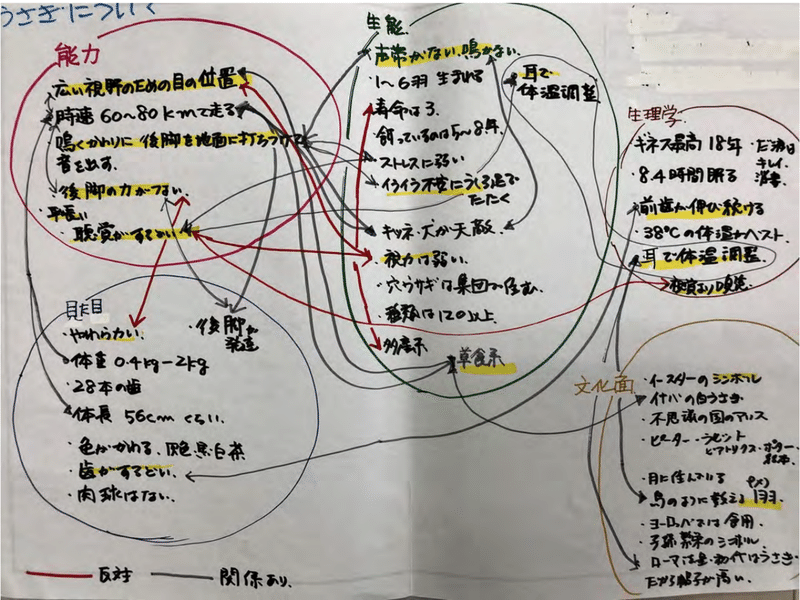 うさぎについて
能力
広い視野のための目の位置
時速 60〜80kmで走る
鳴くかわりに後脚を地面に打ちつけて
音を出す。
後脚の力がつよい
耳長い
聴覚がするどい
生能
声帯がない、鳴かない
1〜6羽 生まれる
寿命は3.
飼っているのは5〜8年.
ストレスに弱い
イライラ不安にうしろ足で
たたく
キツネ・犬が天敵.
視力は弱い.
穴ウサギは集団で住む.
種類は12の以上.
多産系
草食系
耳で
体温調整
生理学
ギネス最高 18年
8.4時間眠る
前歯が伸び続ける
38℃の体温がベスト.
耳で体温調整
見た目
・やわらかい.
・後脚が
発達
・体重 0.4kg−2kg
・28本の歯
・体長 56cm くらい.
・色がかわる、灰色黒白茶
・歯がするどい
・肉球はない.
文化面
・イースターのシンボル
・イナバの白うさぎ
・不思議の国のアリス
・ピーター・ラビット
ビアトリクス・ポター
絵本.
・月に住んでいる
・鳥のように数える 1羽
・ヨーロッパでは食用.
・子孫繁栄のシンボル
ローマは
だから帽子が高い.
反対
関係あり.